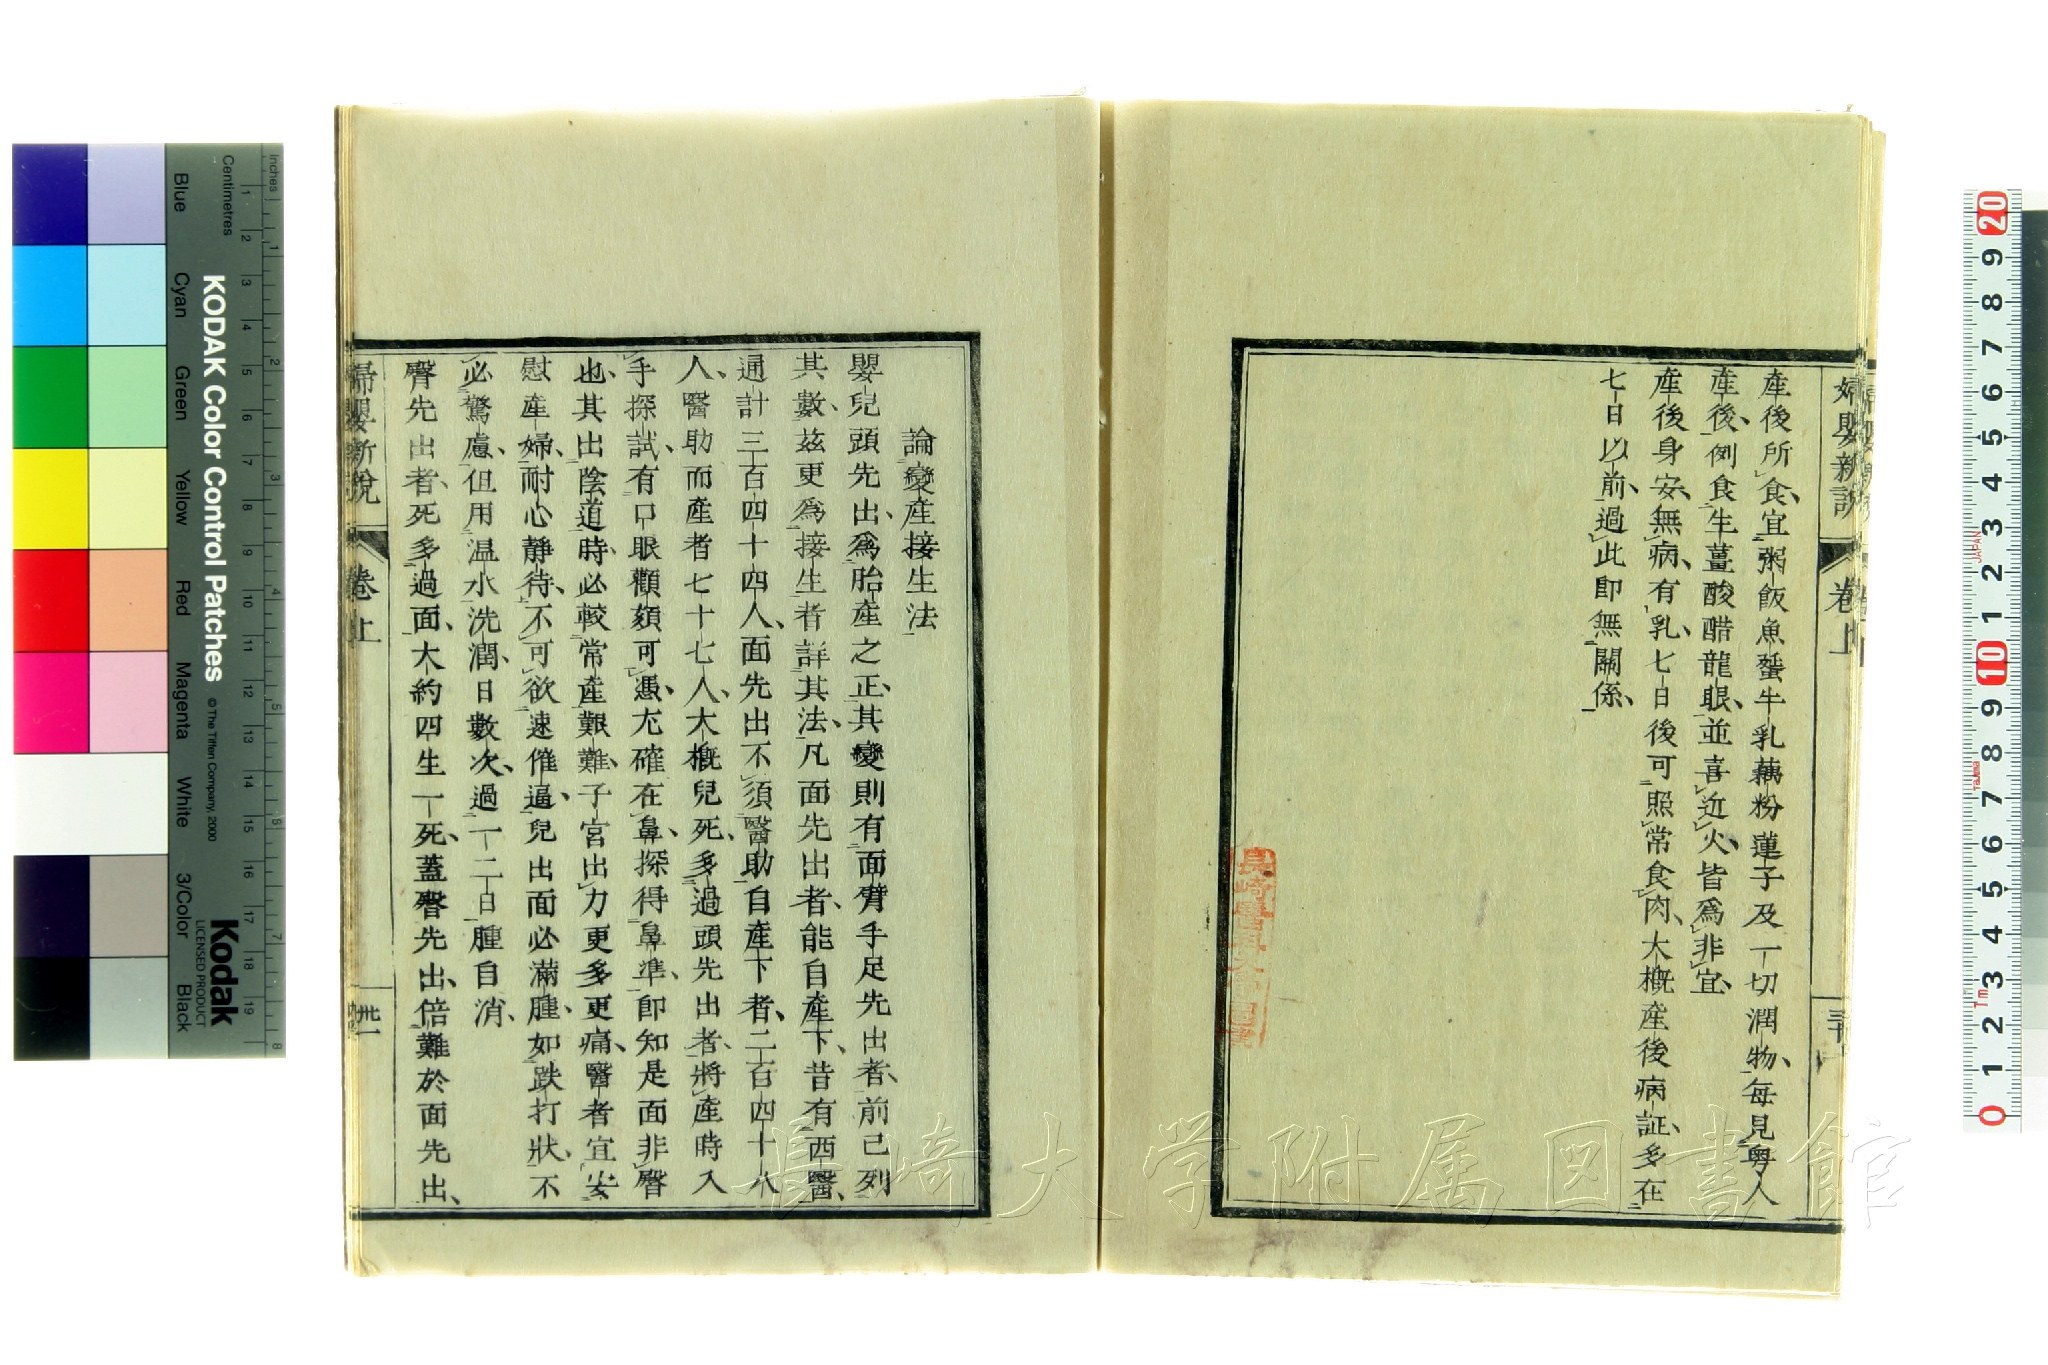 婦嬰新說
卷上
產後所食、宜粥飯魚蛋牛乳藕粉蓮子及一切潤物、每見粤人
產後、例食生薑酸醋龍眼、並喜近火、皆爲非宜、
產後身安、無病、有乳、七日後可照常食肉、大概產後病証、多在
七日以前、過此即無關係、
論變產接生法
嬰兒頭先出、爲胎產之正、其變則有面臂手足先出者、前已列
其數、茲更爲接生者詳其法、凡面先出者、能自產下、昔有西醫、
通計三百四十四人、面先出不須醫助自產下者、二百四十八
人、醫助而產者七十七人、大概兒死、多過頭先出者、將產時入
手探試、有口眼顴頦可憑、尤確在鼻、探得鼻準、即知是面非臀
也、其出陰道時、必較常產艱難、子宮出力更多更痛、醫者宜安
慰產婦、耐心靜待、不可欲速催逼、兒出面必滿腫、如跌打狀、不
必驚慮、但用温水洗潤、日數次、過一二日腫自消、
臀先出者、死多過面、大約四生一死、蓋臀先出、倍難於面先出、
婦嬰新說
卷上
卅一
KODAK Color Control Patches
© The Tiffen Company, 2000
Kodak
LICENSED PRODUCT
Inches
Centimetres
Blue
Cyan
Green
Yellow
Red
Magenta
White
3/Color
Black
1 2 3 4 5 6 7 8 9 10 11 12 13 14 15 16 17 18 19
1 2 3 4 5 6 7 8
0 1 2 3 4 5 6 7 8 9 10 1 2 3 4 5 6 7 8 9 20
JAPAN
長崎大学附属図書館